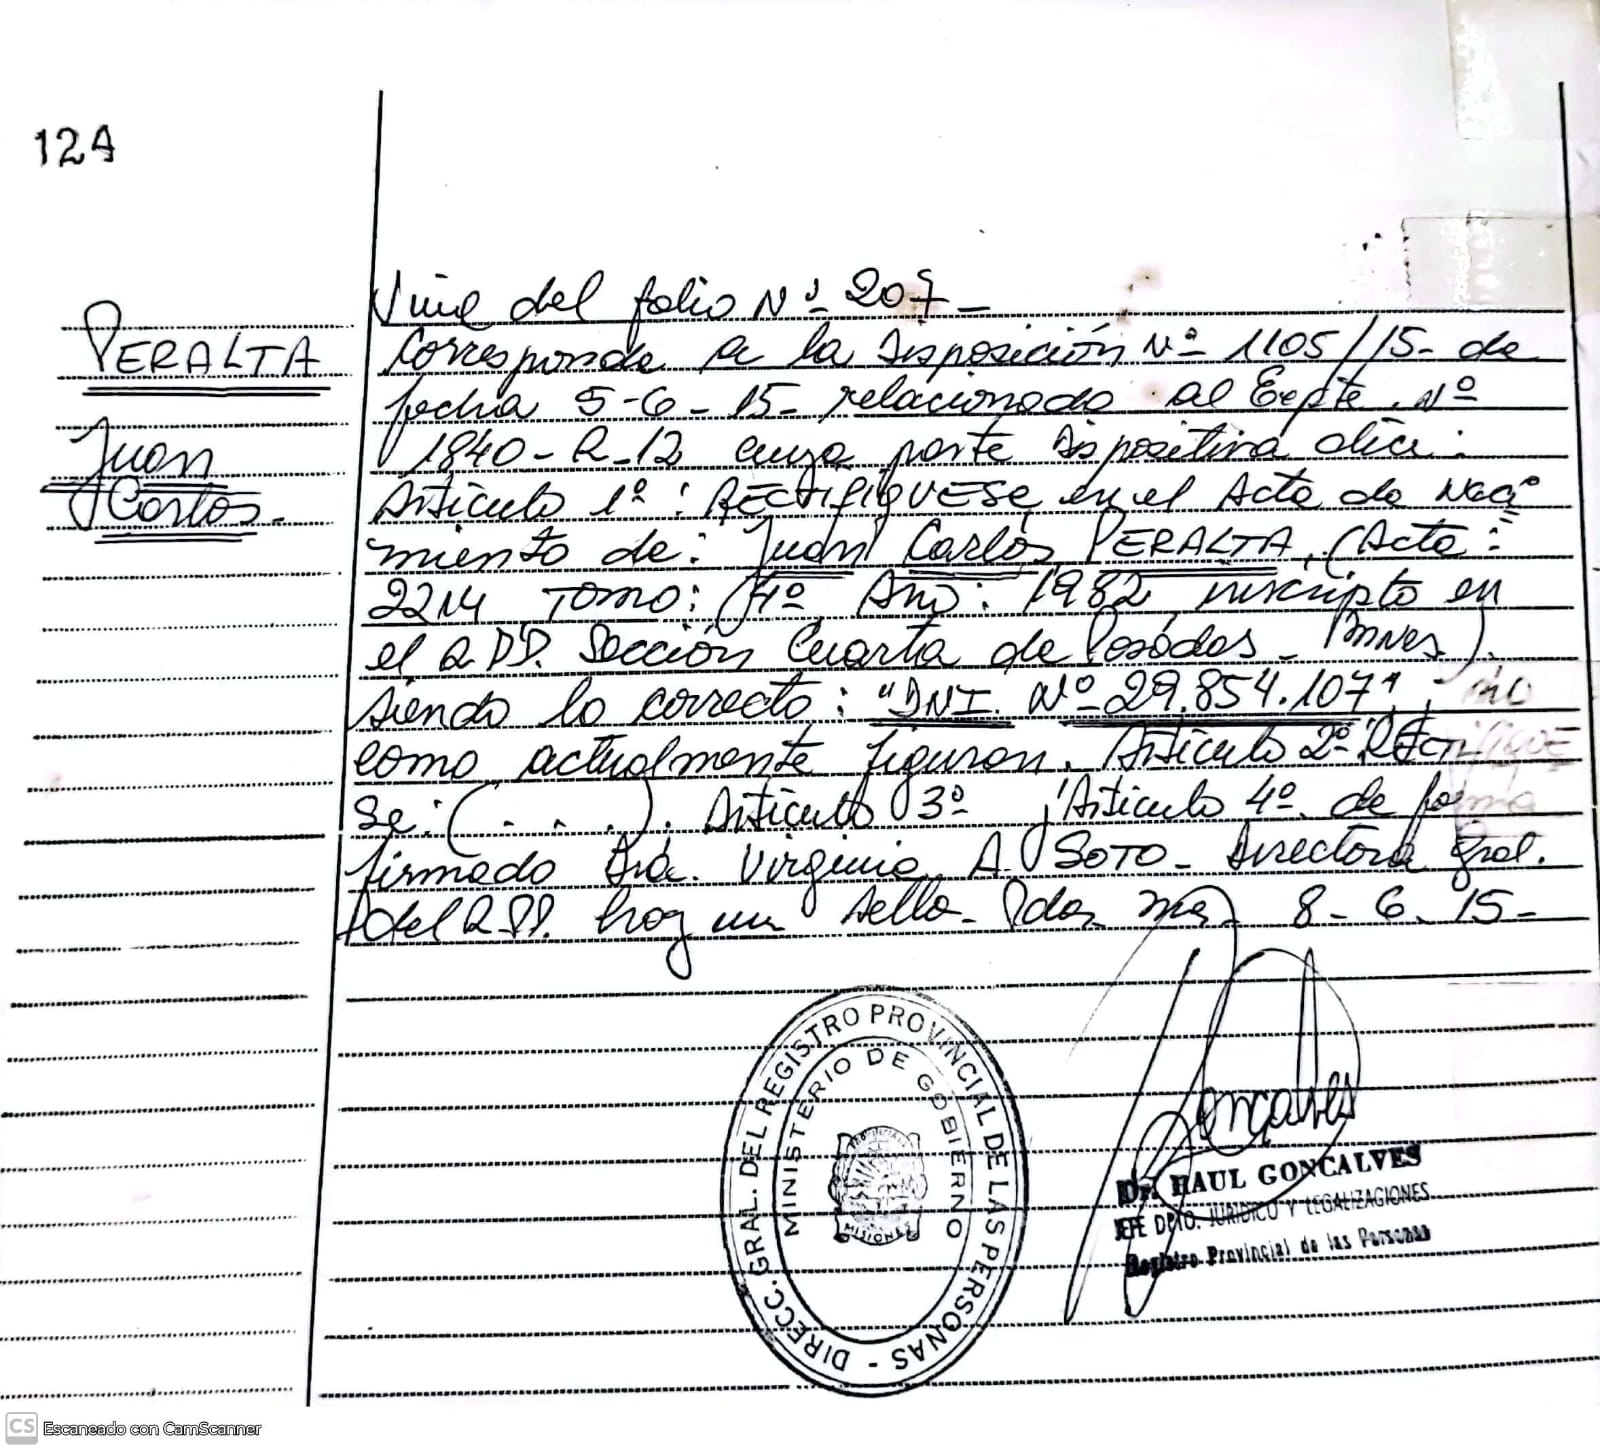 124
PERALTA
Juan
Carlos.
Vine del folio Nº 207 -
Corresponde a la Disposición Nº 1105/15- de
fecha 5-6-15- relacionado al Expte. Nº
1840-R-12 cuya parte dispositiva dice:
Artículo 1º: RECTIFIQUESE en el Acta de Naci
miento de: Juan Carlos PERALTA, (Acta:
2214 Tomo: 4º Año: 1982 inscripto en
el R.P.P. Sección Cuarta de Posadas - Mnes).
siendo lo correcto: "DNI. Nº 29.854.107", no
como actualmente figuran. Artículo 2º: RECTIFIQUE
Se: (. . . .). Artículo 3º y Artículo 4º de forma
firmado Dra. Virginia A. SOTO - Directora Gral.
del R.P.P. hay un sello - Pdas Mnes 8-6-15-
DIRECC. GRAL. DEL REGISTRO PROVINCIAL DE LAS PERSONAS -
MINISTERIO DE GOBIERNO
PROVINCIA
MISIONES
Goncalves
Dr. RAUL GONCALVES
JEFE DPTO. JURIDICO Y LEGALIZACIONES
Registro Provincial de las Personas
CS Escaneado con CamScanner